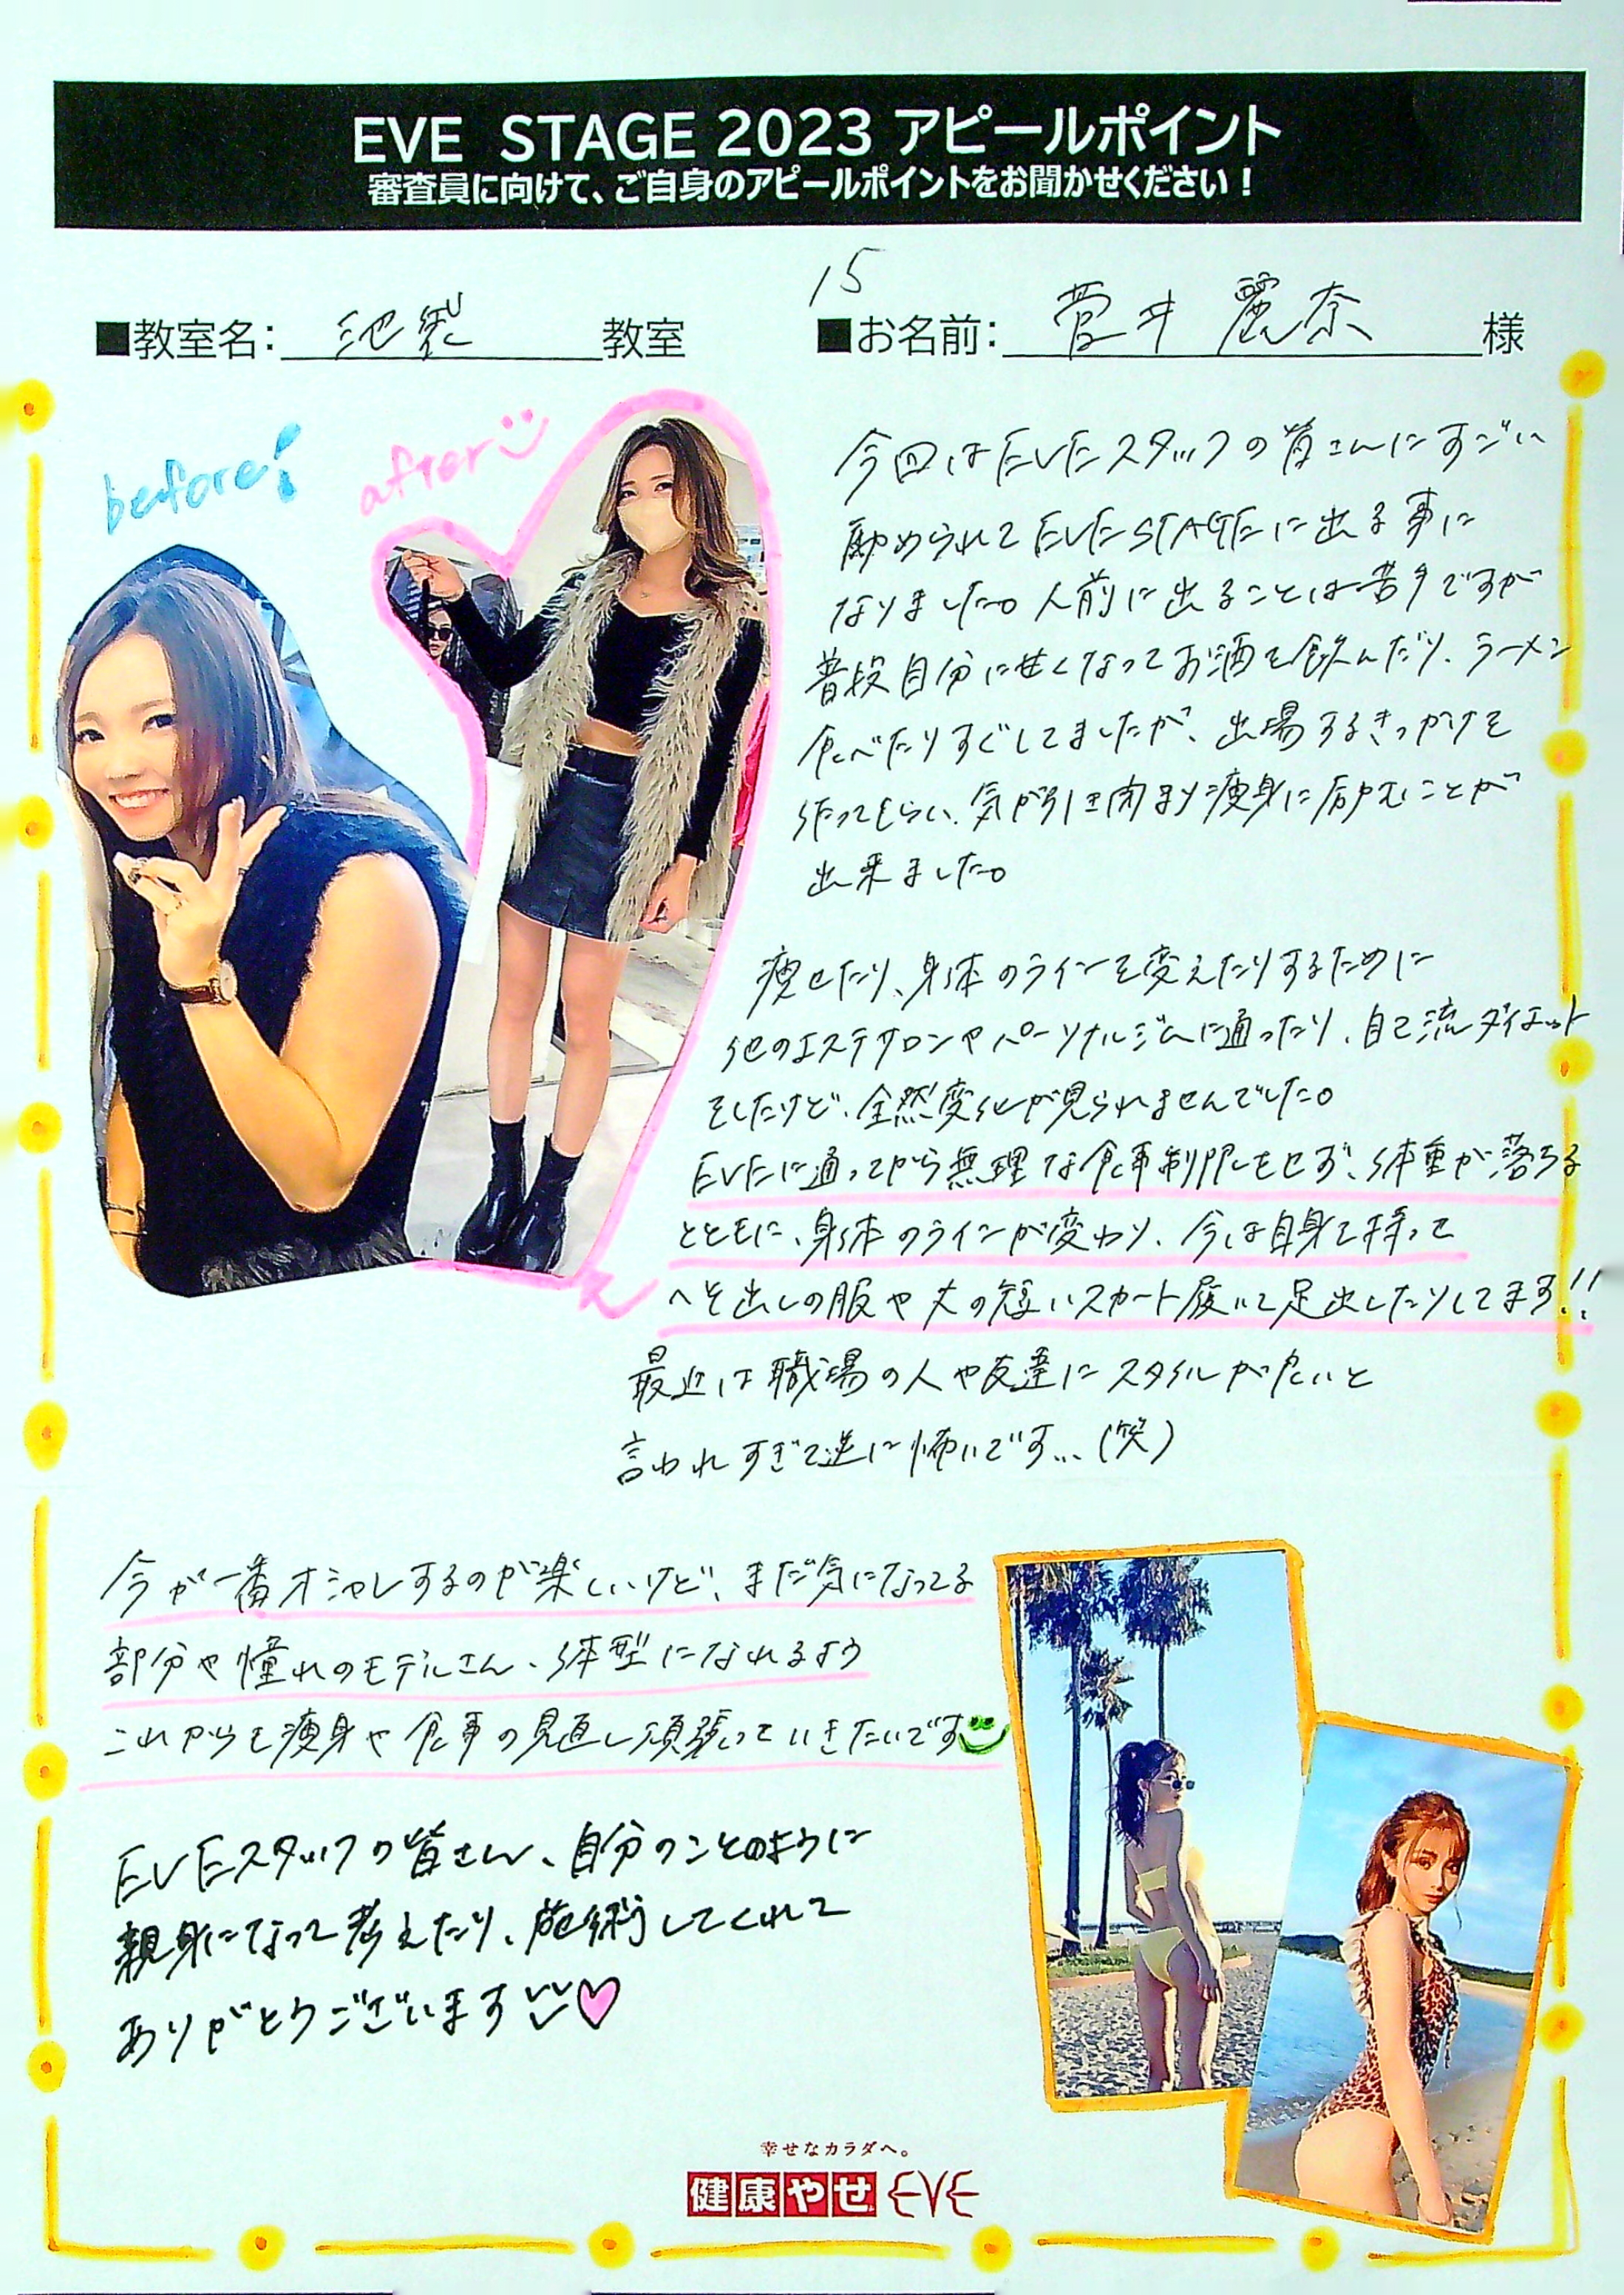 EVE STAGE 2023 アピールポイント
審査員に向けて、ご自身のアピールポイントをお聞かせください！
15
■教室名: 池袋 教室
■お名前: 菅井 麗奈 様
before!
after
今回はEVEスタッフの皆さんにすごい
勧められてEVE STAGEに出る事に
なりました。人前に出ることは苦手ですが
普段自分に甘くなってお酒を飲んだり、ラーメン
食べたりすぐしてましたが、出場するきっかけを
作ってもらい、気が引き閉まり痩身に励むことが
出来ました。
痩せたり、身体のラインを変えたりするために
他のエステサロンやパーソナルジムに通ったり、自己流ダイエット
をしたけど、全然変化が見られませんでした。
EVEに通ってから無理な食事制限もせず、体重が落ちる
とともに、身体のラインが変わり、今は自身を持って
へそ出しの服や丈の短いスカート履いて足出したりしてます!!
最近は職場の人や友達にスタイルが良いと
言われすぎて逆に怖いです…(笑)
今が一番オシャレするのが楽しいけど、まだ気になってる
部分や憧れのモデルさん、体型になれるよう
これからも痩身や食事の見直し頑張っていきたいです
EVEスタッフの皆さん、自分のことのように
親身になって考えたり、施術してくれて
ありがとうございます♡
幸せなカラダへ。
健康やせ EVE